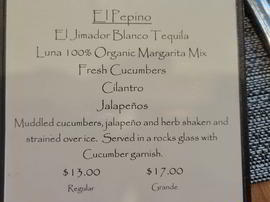 El Pepino
El Jimador Blanco Tequila
Luna 100% Organic Margarita Mix
Fresh Cucumbers
Cilantro
Jalapeños
Muddled cucumbers, jalapeño and herb shaken and
strained over ice. Served in a rocks glass with
Cucumber garnish.
$13.00 $17.00
Regular Grande